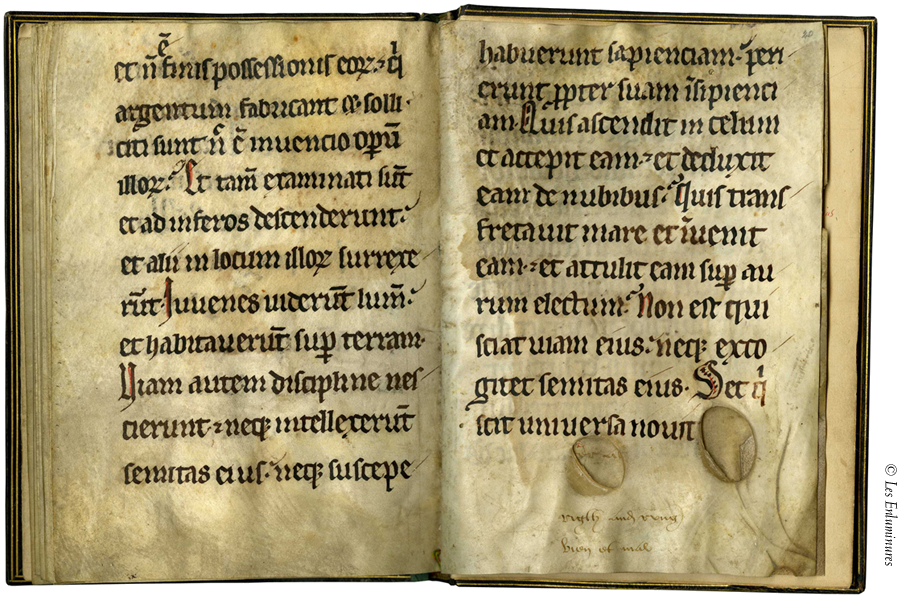 et n̄ ē finis possessionis eoꝝ. ⁊ q̇
argentum fabricant et solli
citi sunt n̄ ē inuencio opeꝝ̄
illoꝝ. Et tam̄ exaininati sūt
et ad inferos descenderunt.
et alii in locum illoꝝ surrexe
rūt. Iuuenes uiderūt lum̄.
et habitauerūt suꝑ terram.
Uiam autem discipline nes
cierunt. ⁊ neqꝫ intellexerūt
semitas eius. neqꝫ suscepe
20
habuerunt sapienciam. peri
erunt ꝓpter suam īsipienci
am. Quis ascendit in celum
et accepit eam. ⁊ et deduxit
eam de nubibus. Quis trans
fretauit mare et īuenit
eam. ⁊ et attulit eam suꝑ au
rum electum. Non est qui
sciat uiam eius. neqꝫ exco
gitet semitas eius. Set q̇
scit uniuersa nouit
rigth and rong
bien et mal
© Les Enluminures